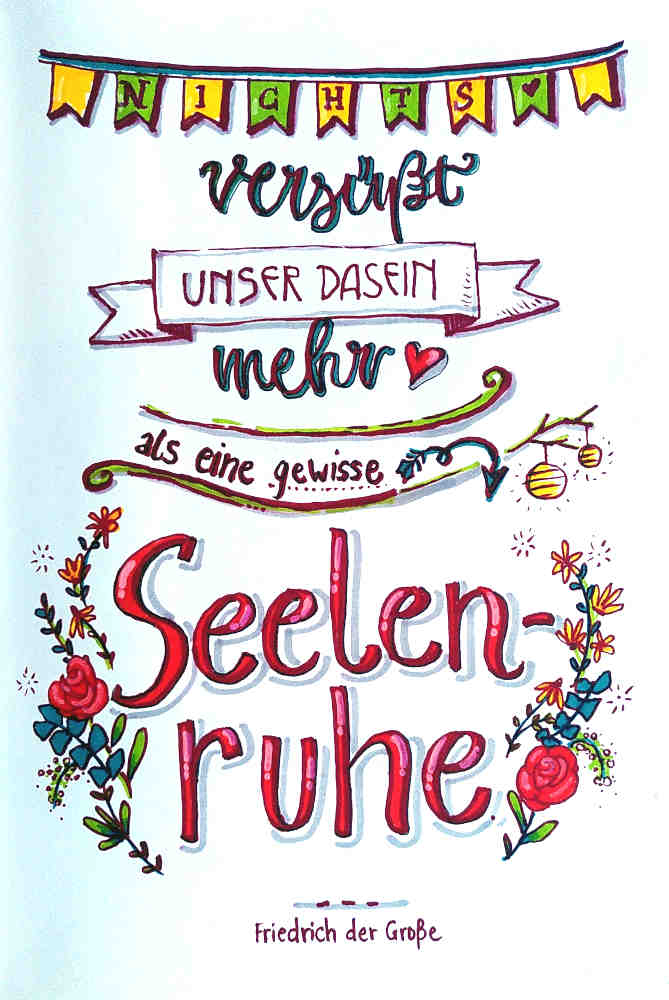 NICHTS
versüßt
UNSER DASEIN
mehr
als eine gewisse
Seelen-
ruhe.
Friedrich der Große